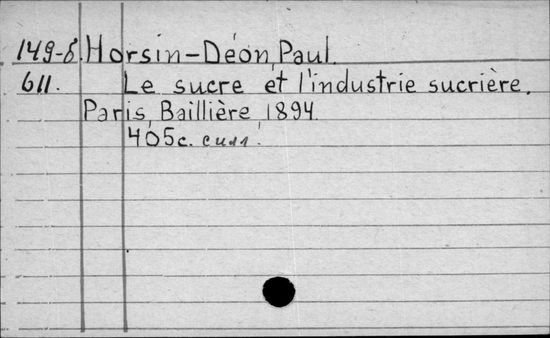 149-8. Horsin-Déon, Paul.
611. Le sucre et l'industrie sucrière.
Paris, Baillière, 1894.
405c. с илл.